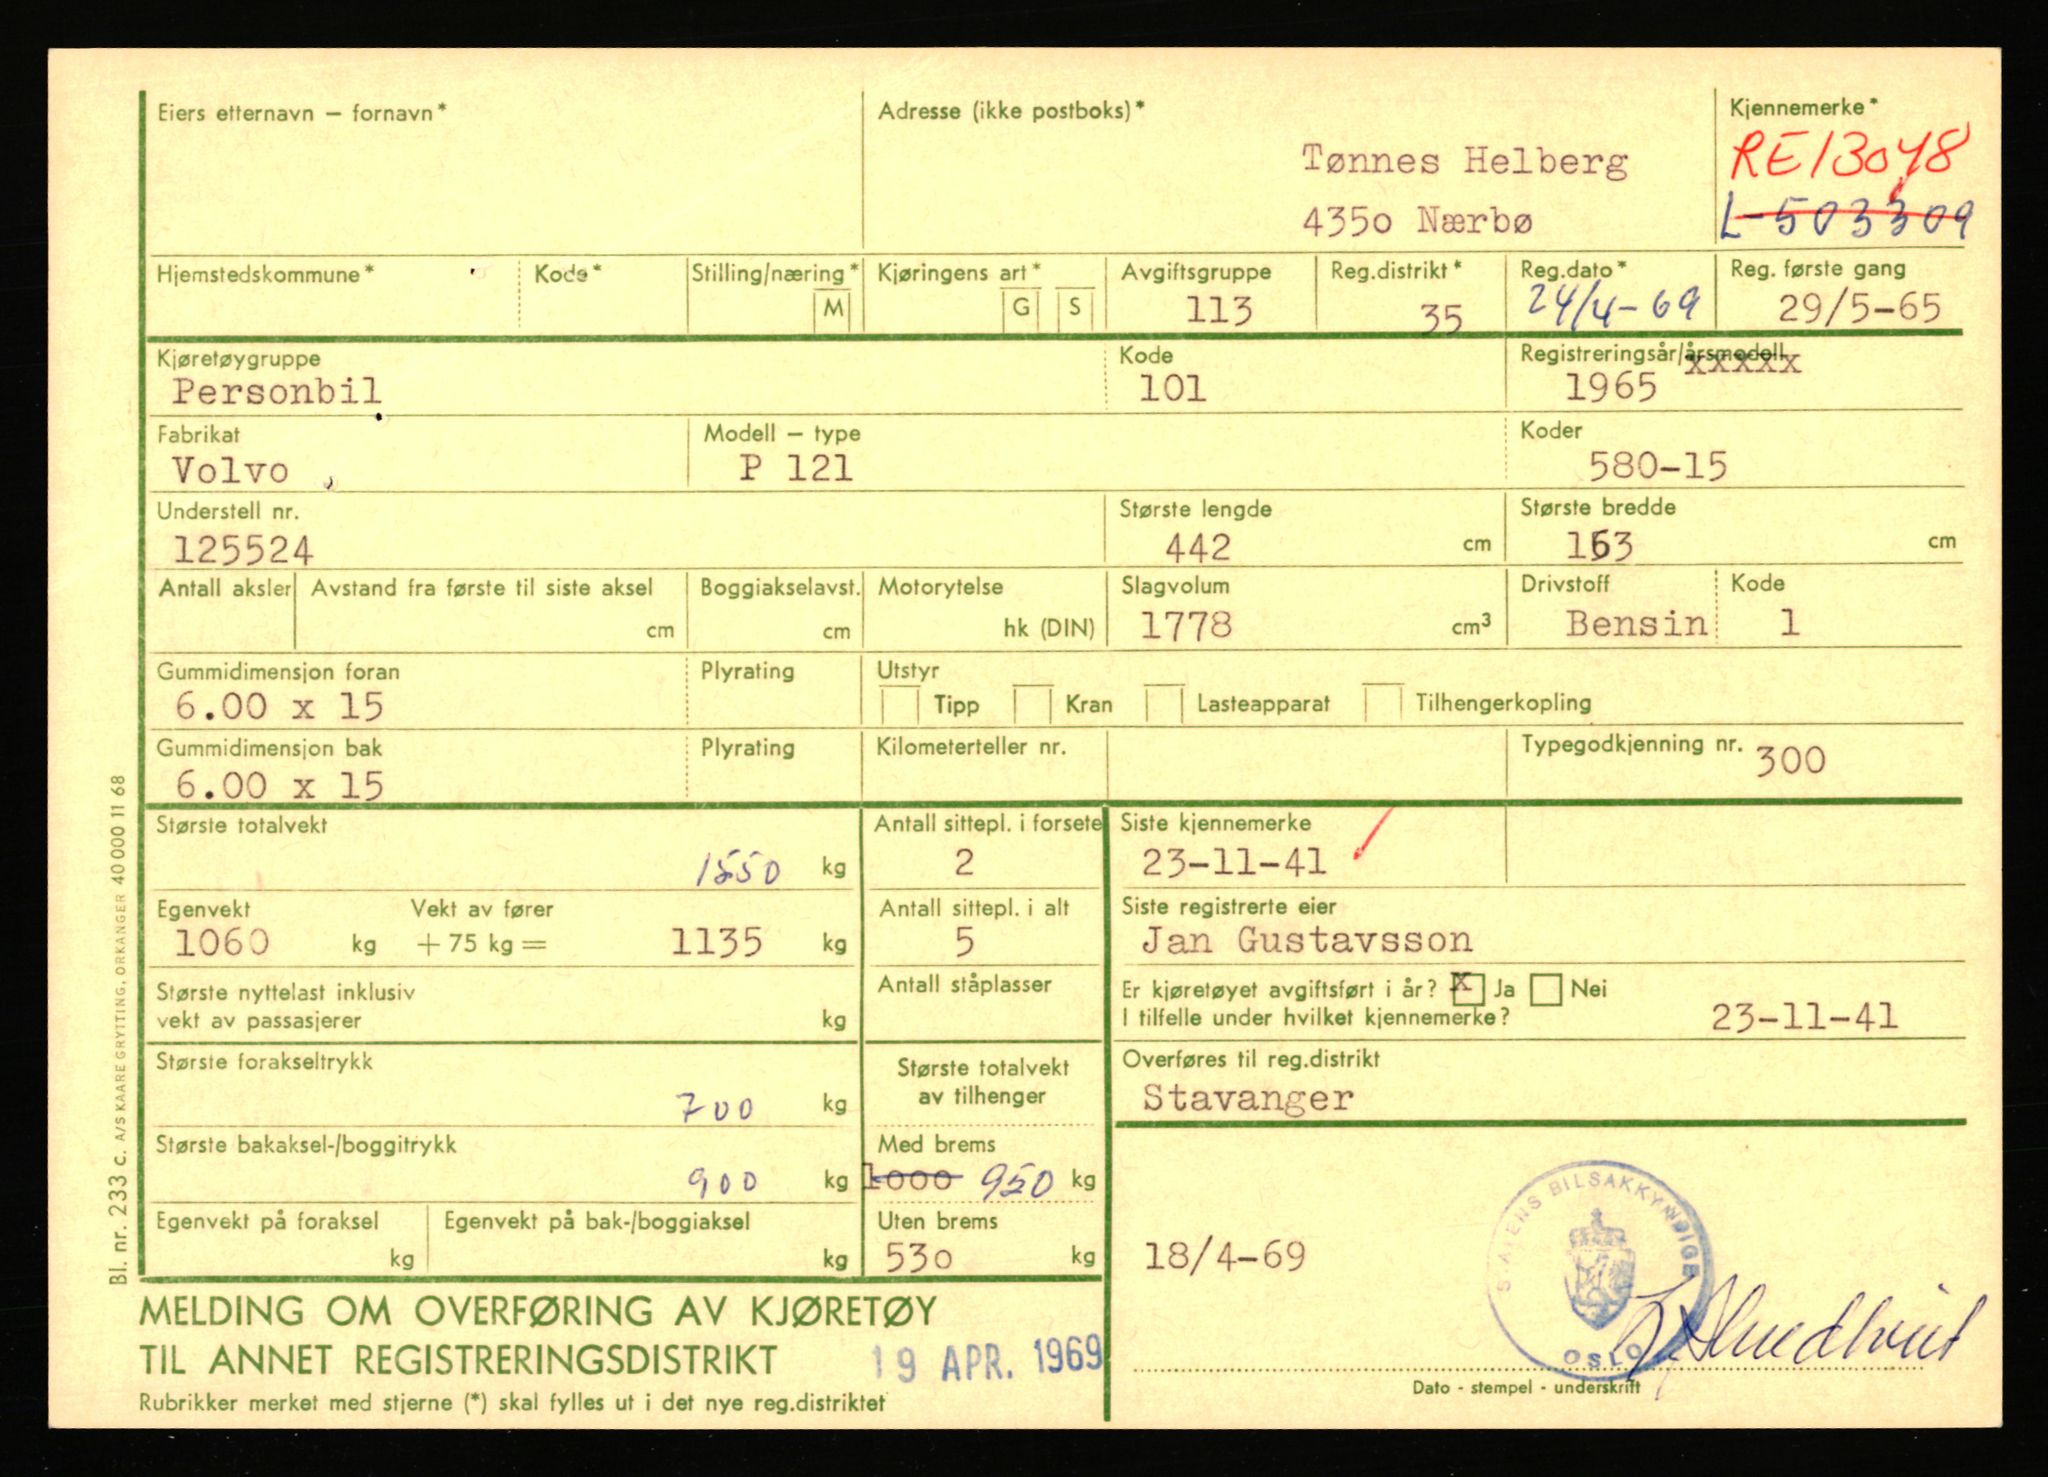 Eiers etternavn – fornavn*
Adresse (ikke postboks)*
Kjennemerke*
Tønnes Helberg
RE13048
4350 Nærbø
L-503309
Hjemstedskommune*
Kode*
Stilling/næring*
M
Kjøringens art*
G S
Avgiftsgruppe
113
Reg.distrikt*
35
Reg.dato*
24/4-69
Reg. første gang
29/5-65
Kjøretøygruppe
Personbil
Kode
101
Registreringsår/årsmodell
xxxxx
1965
Fabrikat
Volvo
Modell – type
P 121
Koder
580-15
Understell nr.
125524
Største lengde
442 cm
Største bredde
163 cm
Antall aksler
Avstand fra første til siste aksel
cm
Boggiakselavst.
cm
Motorytelse
hk (DIN)
Slagvolum
1778 cm³
Drivstoff
Bensin
Kode
1
Gummidimensjon foran
6.00 x 15
Plyrating
Utstyr
Tipp Kran Lasteapparat Tilhengerkopling
Gummidimensjon bak
6.00 x 15
Plyrating
Kilometerteller nr.
Typegodkjenning nr. 300
Største totalvekt
1550 kg
Antall sittepl. i forsete
2
Siste kjennemerke
23-11-41
Egenvekt
1060 kg
Vekt av fører
+ 75 kg = 1135 kg
Antall sittepl. i alt
5
Siste registrerte eier
Jan Gustavsson
Største nyttelast inklusiv
vekt av passasjerer kg
Antall ståplasser
Er kjøretøyet avgiftsført i år? x Ja Nei
I tilfelle under hvilket kjennemerke? 23-11-41
Største forakseltrykk
700 kg
Største totalvekt
av tilhenger
Overføres til reg.distrikt
Stavanger
Største bakaksel-/boggitrykk
900 kg
Med brems
1000 950 kg
Egenvekt på foraksel
kg
Egenvekt på bak-/boggiaksel
kg
Uten brems
530 kg
18/4-69
STATENS BILSAKKYNDIGE
OSLO
MELDING OM OVERFØRING AV KJØRETØY
TIL ANNET REGISTRERINGSDISTRIKT
19 APR. 1969
Rubrikker merket med stjerne (*) skal fylles ut i det nye reg.distriktet
Dato - stempel - underskrift
Bl. nr. 233 c. A/S KAARE GRYTTING, ORKANGER 40 000 11 68